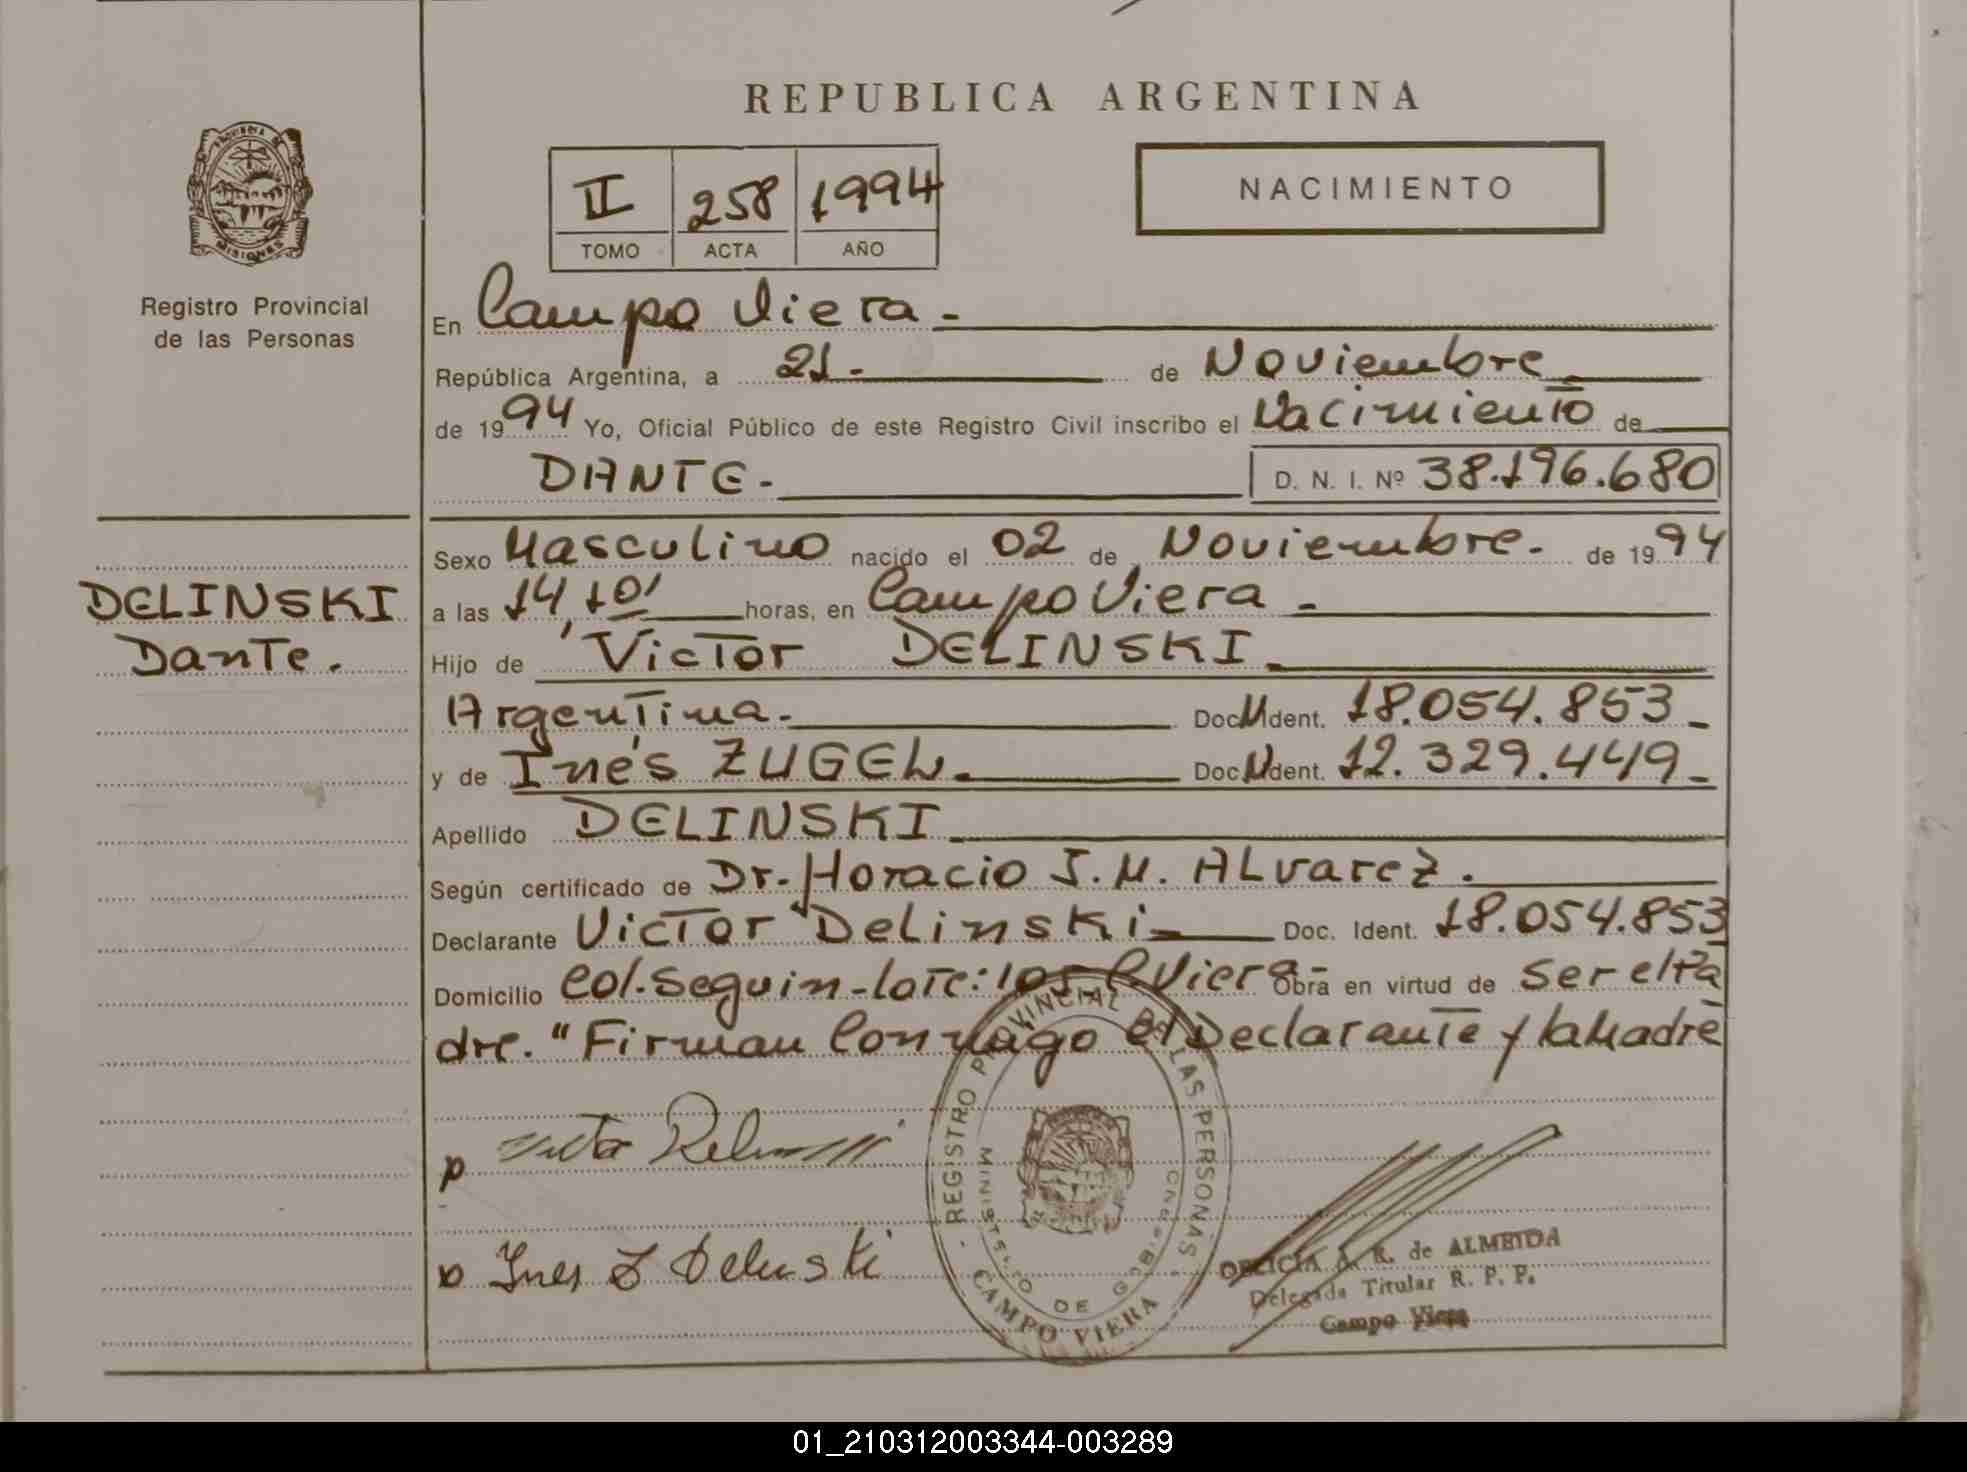 REPUBLICA ARGENTINA
PROVINCIA DE
MISIONES
Registro Provincial
de las Personas
II 258 1994
TOMO ACTA AÑO
NACIMIENTO
En Campo Viera -
República Argentina, a 21- de Noviembre
de 1994 Yo, Oficial Público de este Registro Civil inscribo el Nacimiento de
DANTE - D. N. I. Nº 38.196.680
DELINSKI
Dante.
Sexo Masculino nacido el 02 de Noviembre - de 1994
a las 14,10' horas, en Campo Viera -
Hijo de Victor DELINSKI -
Argentina - Doc. Ident. 18.054.853 -
y de Inés ZUGEL. Doc. Ident. 12.329.449 -
Apellido DELINSKI -
Según certificado de Dr. Horacio J. M. ALvarez.
Declarante Victor Delinski - Doc. Ident. 18.054.853
Domicilio Col. Seguin - Lote: 105 C. Viera Obra en virtud de ser el Pa
dre. "Firman Conmigo el Declarante y la Madre
Ines Z Delinski
REGISTRO PROVINCIAL DE LAS PERSONAS
MINISTERIO DE GOBIERNO
CAMPO VIERA
R. de ALMEIDA
Delegada Titular R. P. P.
Campo Viera
01_210312003344-003289